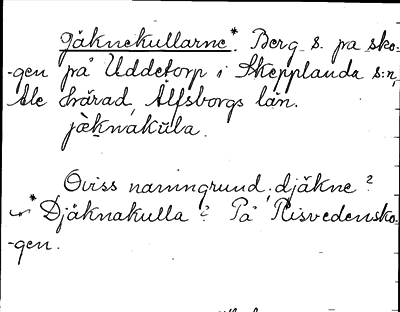 Jäknekullarne*. Berg s. på sko-
-gen på Uddetorp i Skepplanda s:n,
Ale härad, Älfsborgs län.
jäknakúla.
Oviss namngrund, djäkne?
* Djäknakulla? På Risvedensko-
-gen.